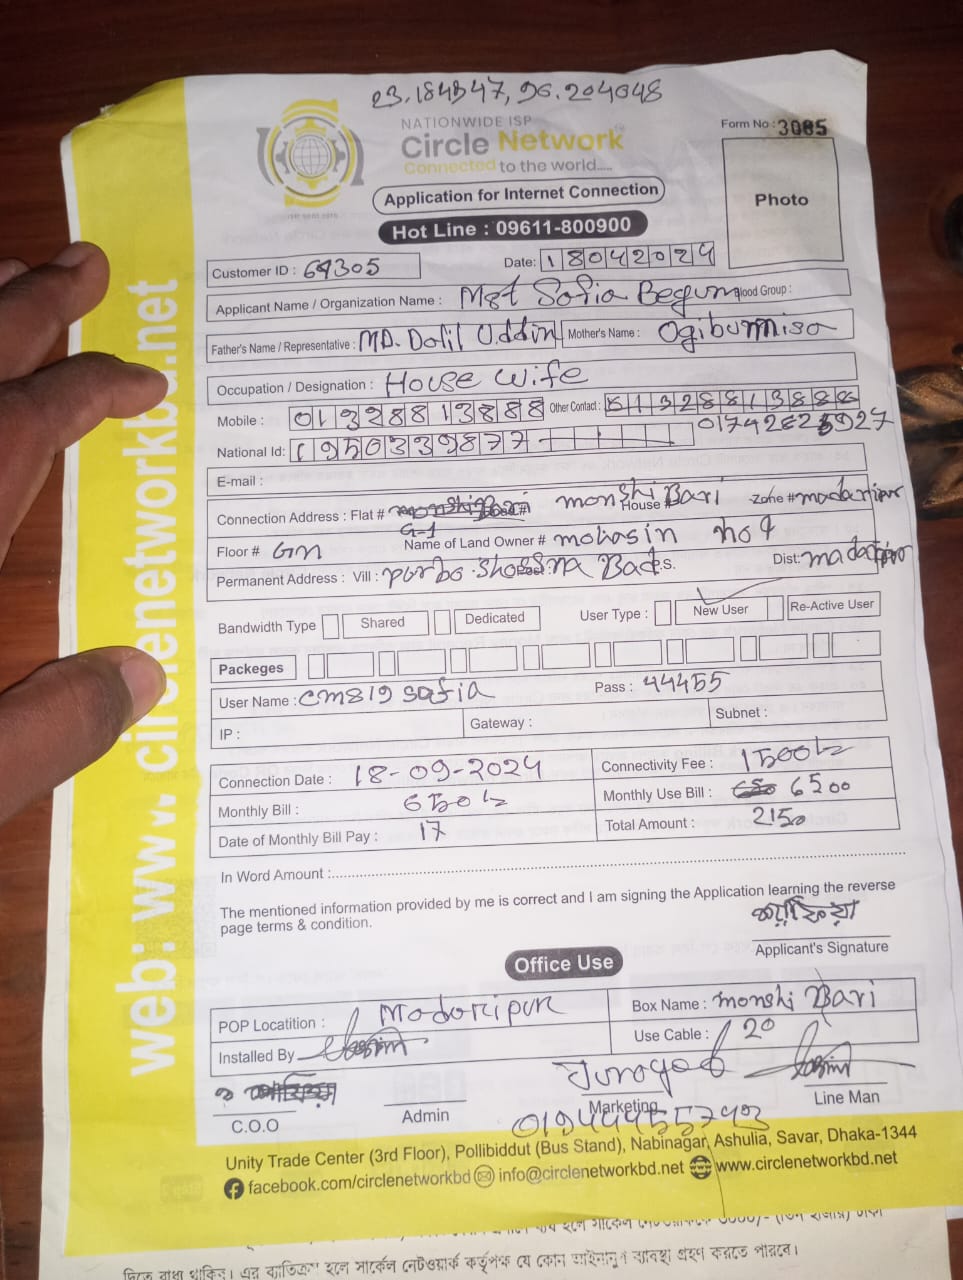 23.184947, 90.204048
NATIONWIDE ISP
Circle Network
Connected to the world.....
Form No : 3085
Photo
Application for Internet Connection
Hot Line : 09611-800900
Customer ID : 69305
Date: 18042024
Applicant Name / Organization Name : Mst Sofia Begum Blood Group :
Father's Name / Representative : MD. Dolil Uddin Mother's Name : Ogibunnisa
Occupation / Designation : House wife
Mobile : 01328813888 Other Contact : 01328813888
National Id: 1950339877
E-mail :
Connection Address : Flat # monshi Bari House # Zone # madaripur
G-1
Floor # Gn Name of Land Owner # mohosin no 9
Permanent Address : Vill : purbo P.S. Dist: madaripur
Bandwidth Type Shared Dedicated User Type : New User Re-Active User
Packeges
User Name : cm819 safia Pass : 44455
IP : Gateway : Subnet :
Connection Date : 18-09-2024 Connectivity Fee : 1500
Monthly Bill : 650 Monthly Use Bill : 6500
Date of Monthly Bill Pay : 17 Total Amount : 2150
In Word Amount :
The mentioned information provided by me is correct and I am signing the Application learning the reverse
page terms & condition.
Applicant's Signature
Office Use
POP Locatition : Madaripur Box Name : monshi Bari
Installed By Use Cable : 20
C.O.O Admin Marketing Line Man
Unity Trade Center (3rd Floor), Pollibiddut (Bus Stand), Nabinagar, Ashulia, Savar, Dhaka-1344
facebook.com/circlenetworkbd info@circlenetworkbd.net www.circlenetworkbd.net
web: www.circlenetworkbd.net
দিতে বাধ্য থাকিব। এর ব্যতিক্রম হলে সার্কেল নেটওয়ার্ক কর্তৃপক্ষ যে কোন আইনানুগ ব্যবস্থা গ্রহণ করতে পারবে।